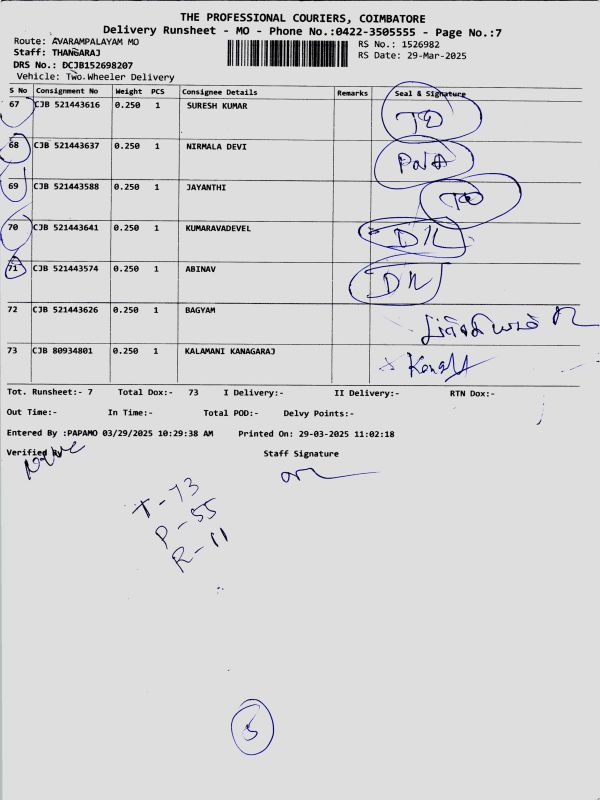 THE PROFESSIONAL COURIERS, COIMBATORE
Delivery Runsheet - MO - Phone No.:0422-3505555 - Page No.:7
Route: AVARAMPALAYAM MO
Staff: THANGARAJ
DRS No.: DCJB152698207
Vehicle: Two Wheeler Delivery
RS No.: 1526982
RS Date: 29-Mar-2025
S No Consignment No Weight PCS Consignee Details Remarks Seal & Signature
67 CJB 521443616 0.250 1 SURESH KUMAR
68 CJB 521443637 0.250 1 NIRMALA DEVI
69 CJB 521443588 0.250 1 JAYANTHI
70 CJB 521443641 0.250 1 KUMARAVADEVEL DL
71 CJB 521443574 0.250 1 ABINAV DL
72 CJB 521443626 0.250 1 BAGYAM
73 CJB 80934801 0.250 1 KALAMANI KANAGARAJ
Tot. Runsheet:- 7 Total Dox:- 73 I Delivery:- II Delivery:- RTN Dox:-
Out Time:- In Time:- Total POD:- Delvy Points:-
Entered By :PAPAMO 03/29/2025 10:29:38 AM Printed On: 29-03-2025 11:02:18
Verified By Staff Signature
T-73
P-55
R-11
5